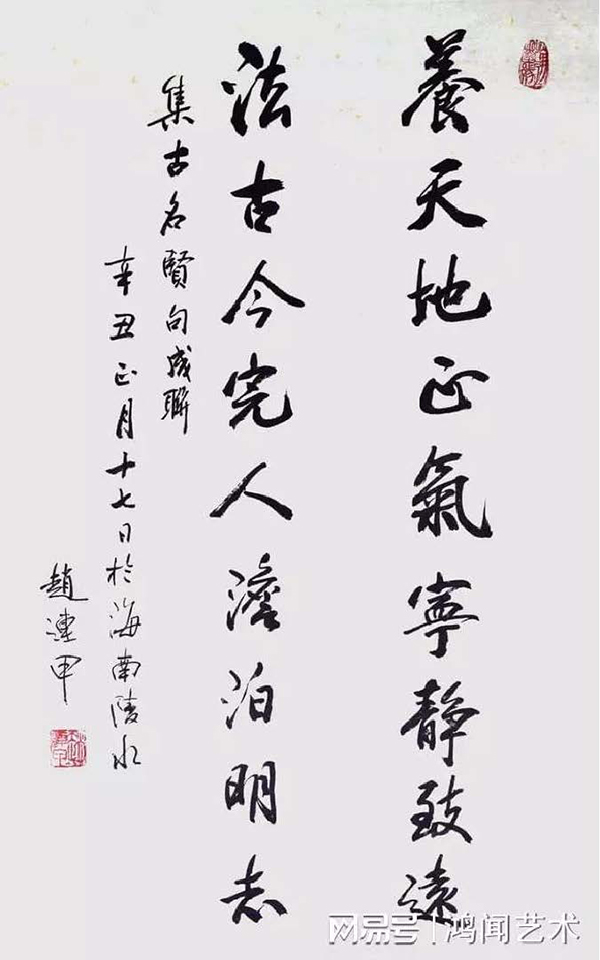 養天地正氣寧靜致遠
法古今完人澹泊明志
集古名賢句成聯
辛丑正月十七日於海南陵水
趙連甲
网易号 | 鸿闻艺术